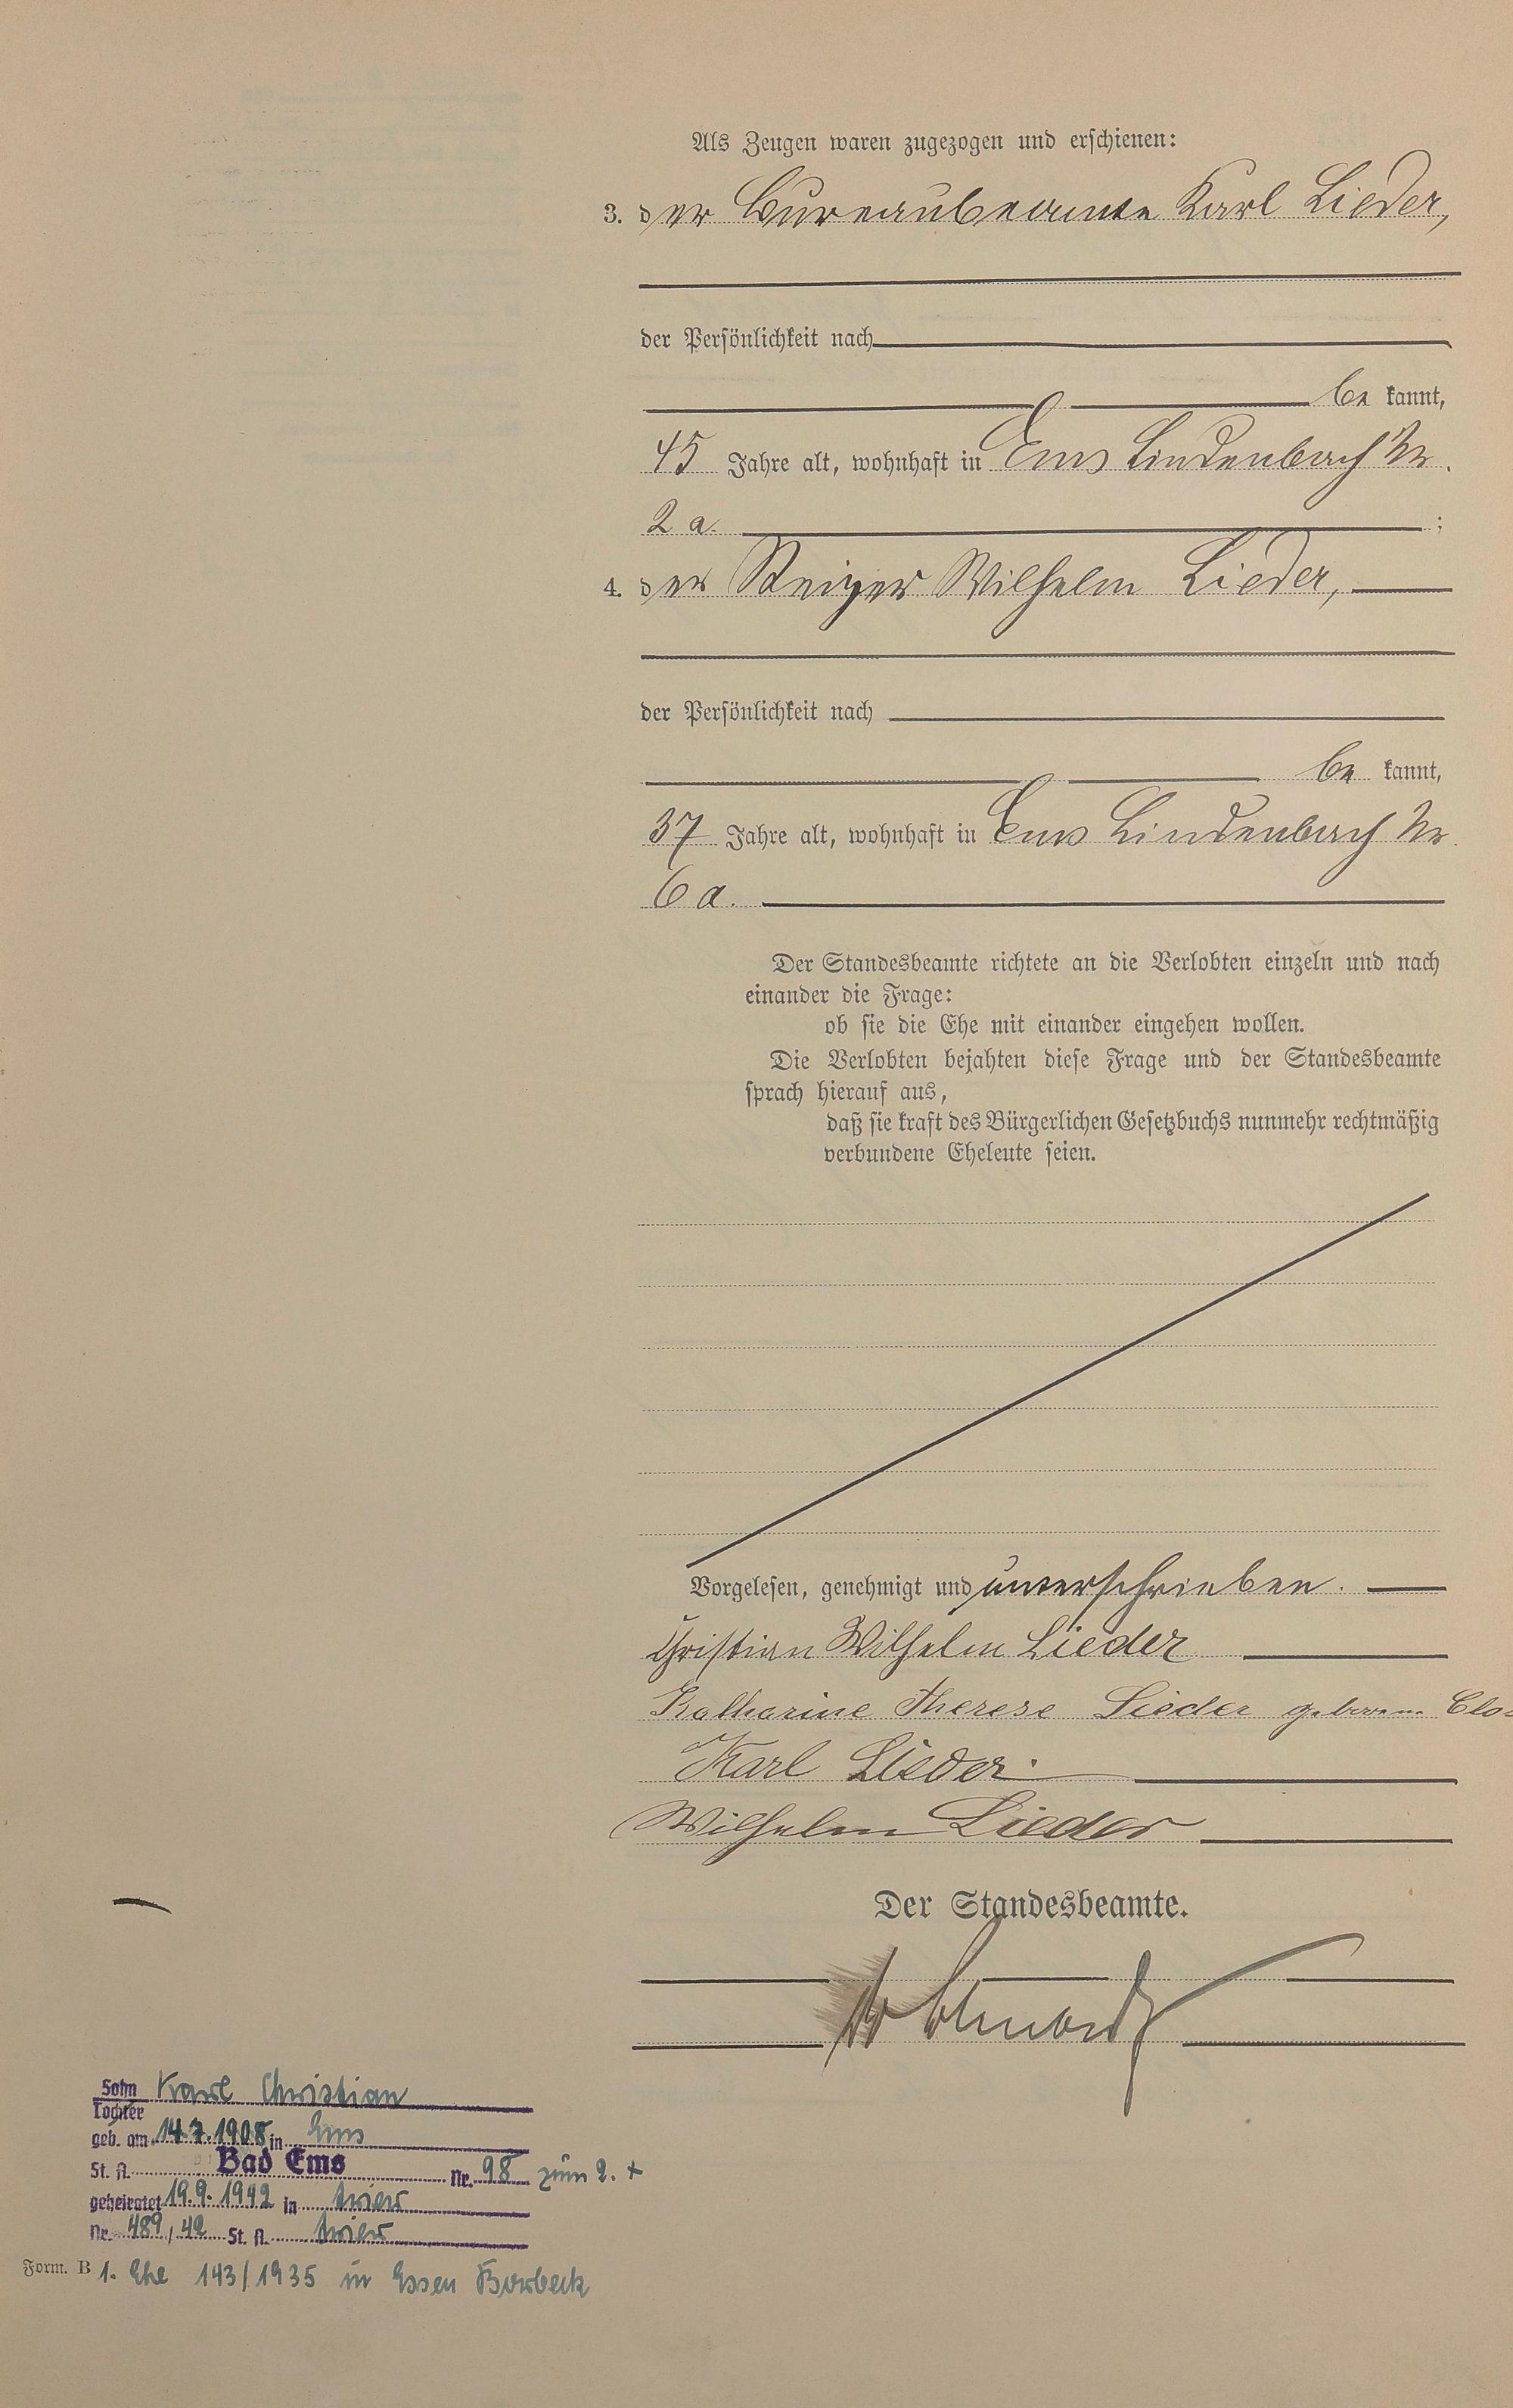 Als Zeugen waren zugezogen und erschienen:
3. der Bureaubeamte Karl Lieder,
der Persönlichkeit nach
be kannt,
45 Jahre alt, wohnhaft in Ems Lindenbach Nr.
2 a. ;
4. der Steiger Wilhelm Lieder,
der Persönlichkeit nach
be kannt,
37 Jahre alt, wohnhaft in Ems Lindenbach Nr.
6 a.
Der Standesbeamte richtete an die Verlobten einzeln und nach
einander die Frage:
ob sie die Ehe mit einander eingehen wollen.
Die Verlobten bejahten diese Frage und der Standesbeamte
sprach hierauf aus,
daß sie kraft des Bürgerlichen Gesetzbuchs nunmehr rechtmäßig
verbundene Eheleute seien.
Vorgelesen, genehmigt und unterschrieben.
Christian Wilhelm Lieder
Katharine Therese Lieder geborene
Karl Lieder.
Wilhelm Lieder
Der Standesbeamte.
Sohn Karl Christian
Tochter
geb. am 14.7.1908 in Ems
St. A. Bad Ems Nr. 98 zum 2. x
geheiratet 19.9.1942 in Trier
Nr. 489/42 St. A. Trier
Form. B 1. Ehe 143/1935 in Essen Borbeck